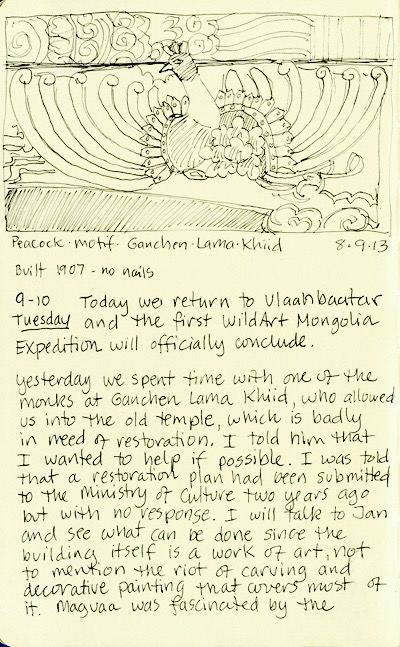 Peacock · motif · Ganchen · Lama · Khiid 8·9·13
Built 1907 - no nails
9-10 Today we return to Ulaanbaatar
Tuesday and the first WildArt Mongolia
Expedition will officially conclude.
Yesterday we spent time with one of the
monks at Ganchen Lama Khiid, who allowed
us into the old temple, which is badly
in need of restoration. I told him that
I wanted to help if possible. I was told
that a restoration plan had been submitted
to the Ministry of Culture two years ago
but with no response. I will talk to Jan
and see what can be done since the
building itself is a work of art, not
to mention the riot of carving and
decorative painting that covers most of
it. Magvaa was fascinated by the